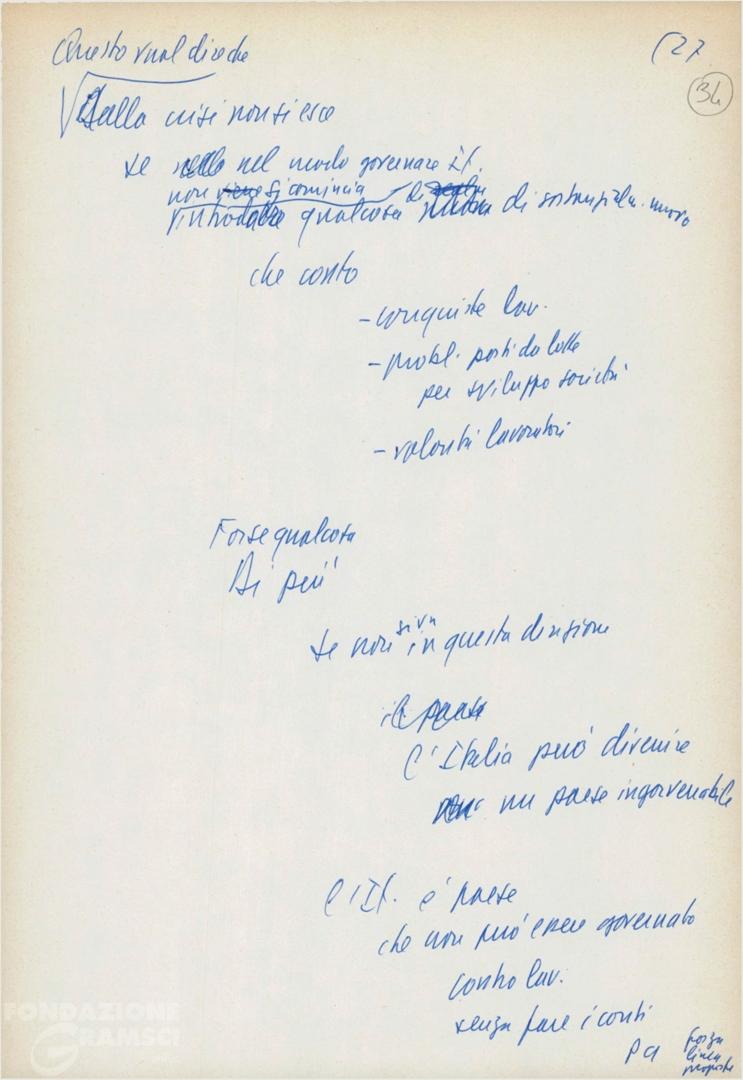 Questo vuol dire che
(27
34
Dalla crisi non si esce
se nel modo governare It.
non si comincia
introdurre qualcosa di sostanzialm. nuovo
che conto
- conquiste lav.
- probl. posti da lotte
per sviluppo società
- volontà lavoratori
Forse qualcosa
Di più
se non si va in questa direzione
il paese
l'Italia può divenire
un paese ingovernabile
l'It. è paese
che non può essere governato
contro lav.
senza fare i conti
PCI
forza
linea
proposte
FONDAZIONE
GRAMSCI